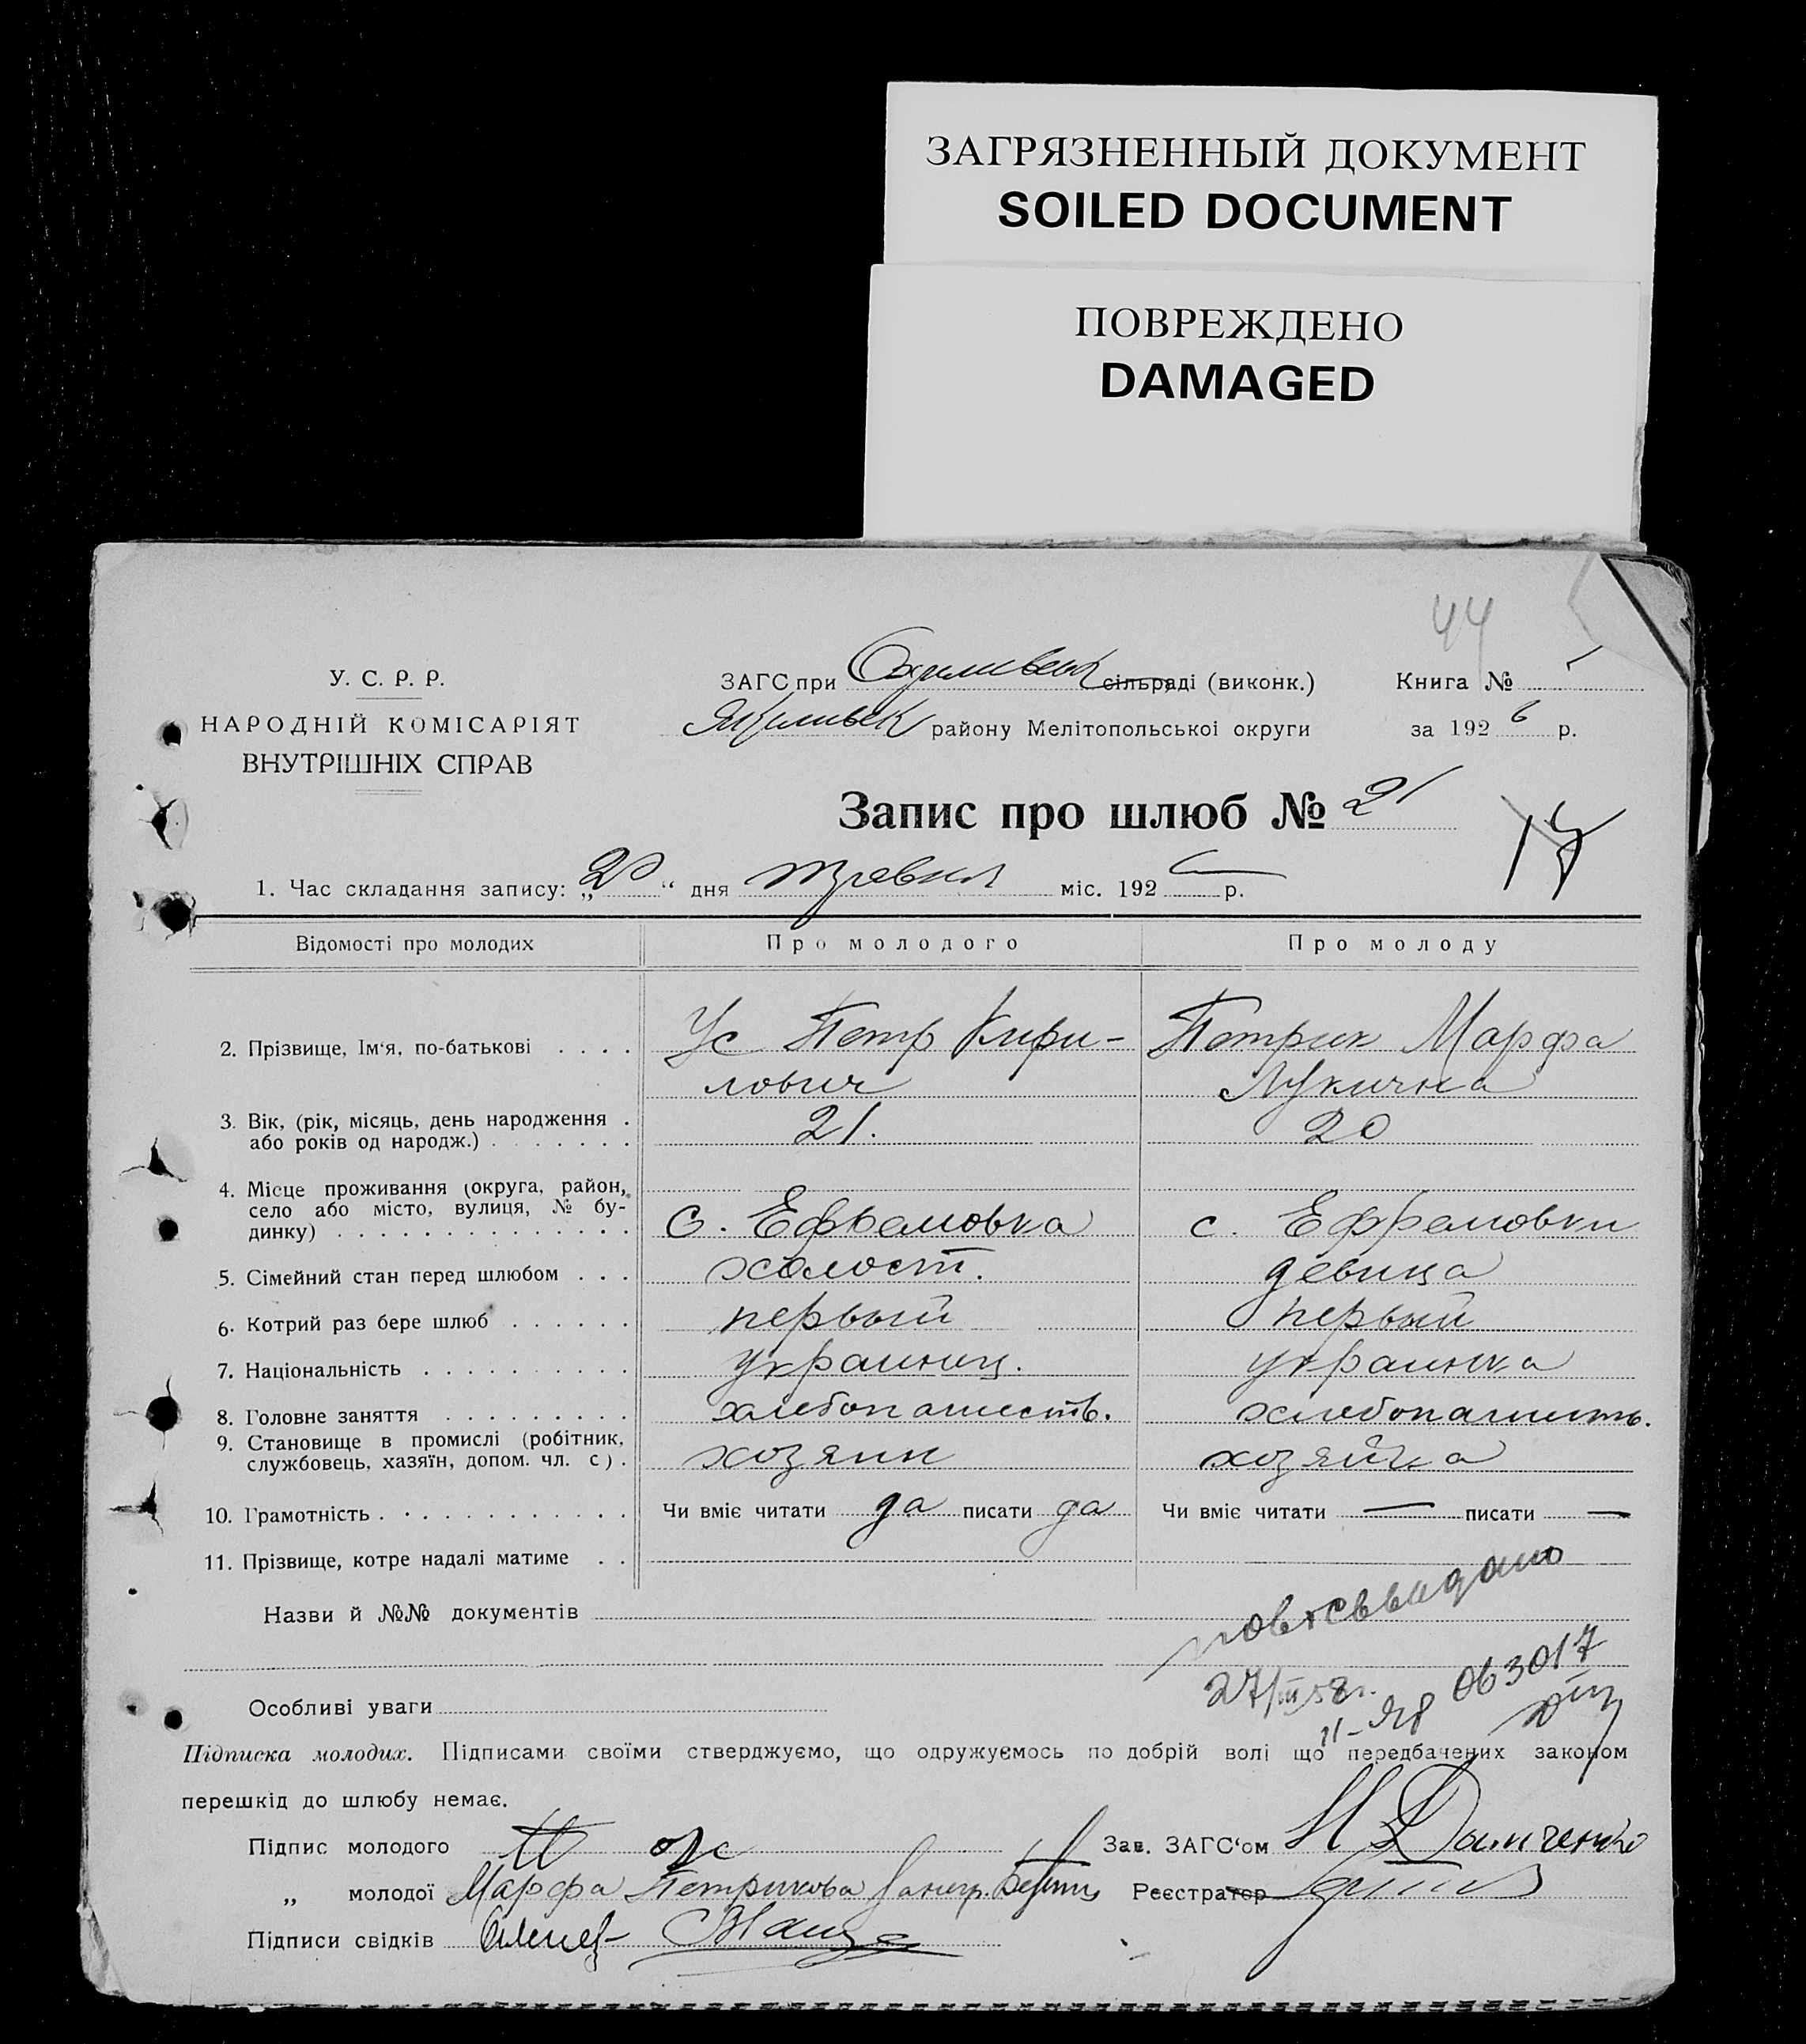 ЗАГРЯЗНЕННЫЙ ДОКУМЕНТ
SOILED DOCUMENT
ПОВРЕЖДЕНО
DAMAGED
44
У. С. Р. Р.
НАРОДНІЙ КОМІСАРІЯТ
ВНУТРІШНІХ СПРАВ
ЗАГС при сільраді (виконк.)
району Мелітопольської округи
Книга № 1
за 1926 р.
Запис про шлюб № 21
1. Час складання запису: „20“ дня травня міс. 192 р.
Відомості про молодих Про молодого Про молоду
2. Прізвище, Ім‘я, по-батькові . . . . Ус Петр Кири- Петрик Марфа
лович Лукична
3. Вік, (рік, місяць, день народження .
або років од народж.) . . . . . . . 21. 20
4. Місце проживання (округа, район,
село або місто, вулиця, № бу-
динку) . . . . . . . . . . . . . . с. Ефремовка с. Ефремовки
5. Сімейний стан перед шлюбом . . . холост. девица
6. Котрий раз бере шлюб . . . . . . первый первый
7. Національність . . . . . . . . . . украинец. украинка
8. Головне заняття . . . . . . . . . хлебопашеств. хлебопашеств.
9. Становище в промислі (робітник,
службовець, хазяїн, допом. чл. с) . хозяин хозяйка
10. Грамотність . . . . . . . . . . . . Чи вміє читати да писати да Чи вміє читати — писати —
11. Прізвище, котре надалі матиме . .
Назви й №№ документів
27/III 58 г.
063017
Особливі уваги
Підписка молодих. Підписами своїми стверджуємо, що одружуємось по добрій волі що передбачених законом
перешкід до шлюбу немає.
Підпис молодого Ус Зав. ЗАГС‘ом
„ молодої Марфа Петрикова Реєстратор
Підписи свідків